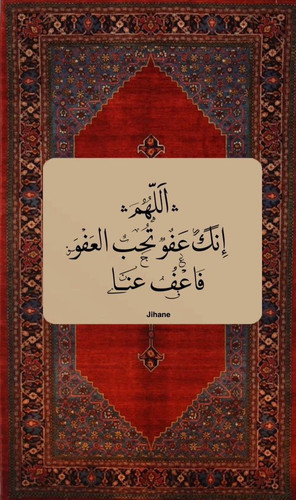 اَللّٰهُمَّ
إِنَّكَ عَفُوٌّ تُحِبُّ العَفْوَ
فَاعْفُ عَنَّا
Jihane